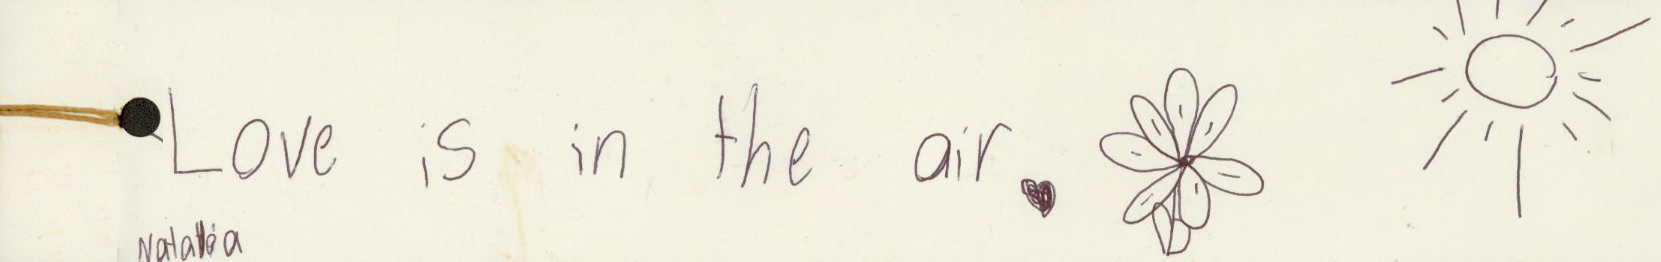 Love is in the air
Natalia